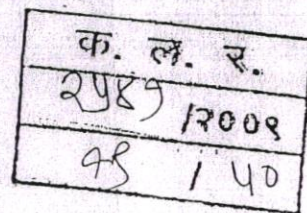 क. ल. र.
२५४१ /२००९
/ ५०